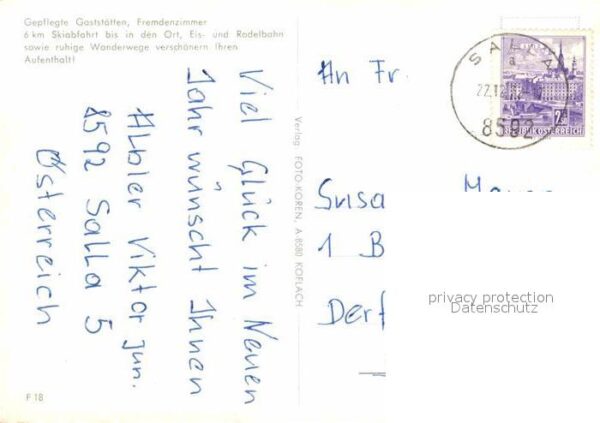 Gepflegte Gaststätten, Fremdenzimmer
6 km Skiabfahrt bis in den Ort, Eis- und Rodelbahn
sowie ruhige Wanderwege verschönern Ihren
Aufenthalt!
Viel Glück im Neuen
Jahr wünscht Ihnen
Albler Viktor jun.
8592 Salla 5
Österreich
F 18
Verlag FOTO-KOREN, A-8580 KÖFLACH
SALLA
a
8592
2
REPUBLIK ÖSTERREICH
An Fr.
Susa
1 B
privacy protection
Datenschutz